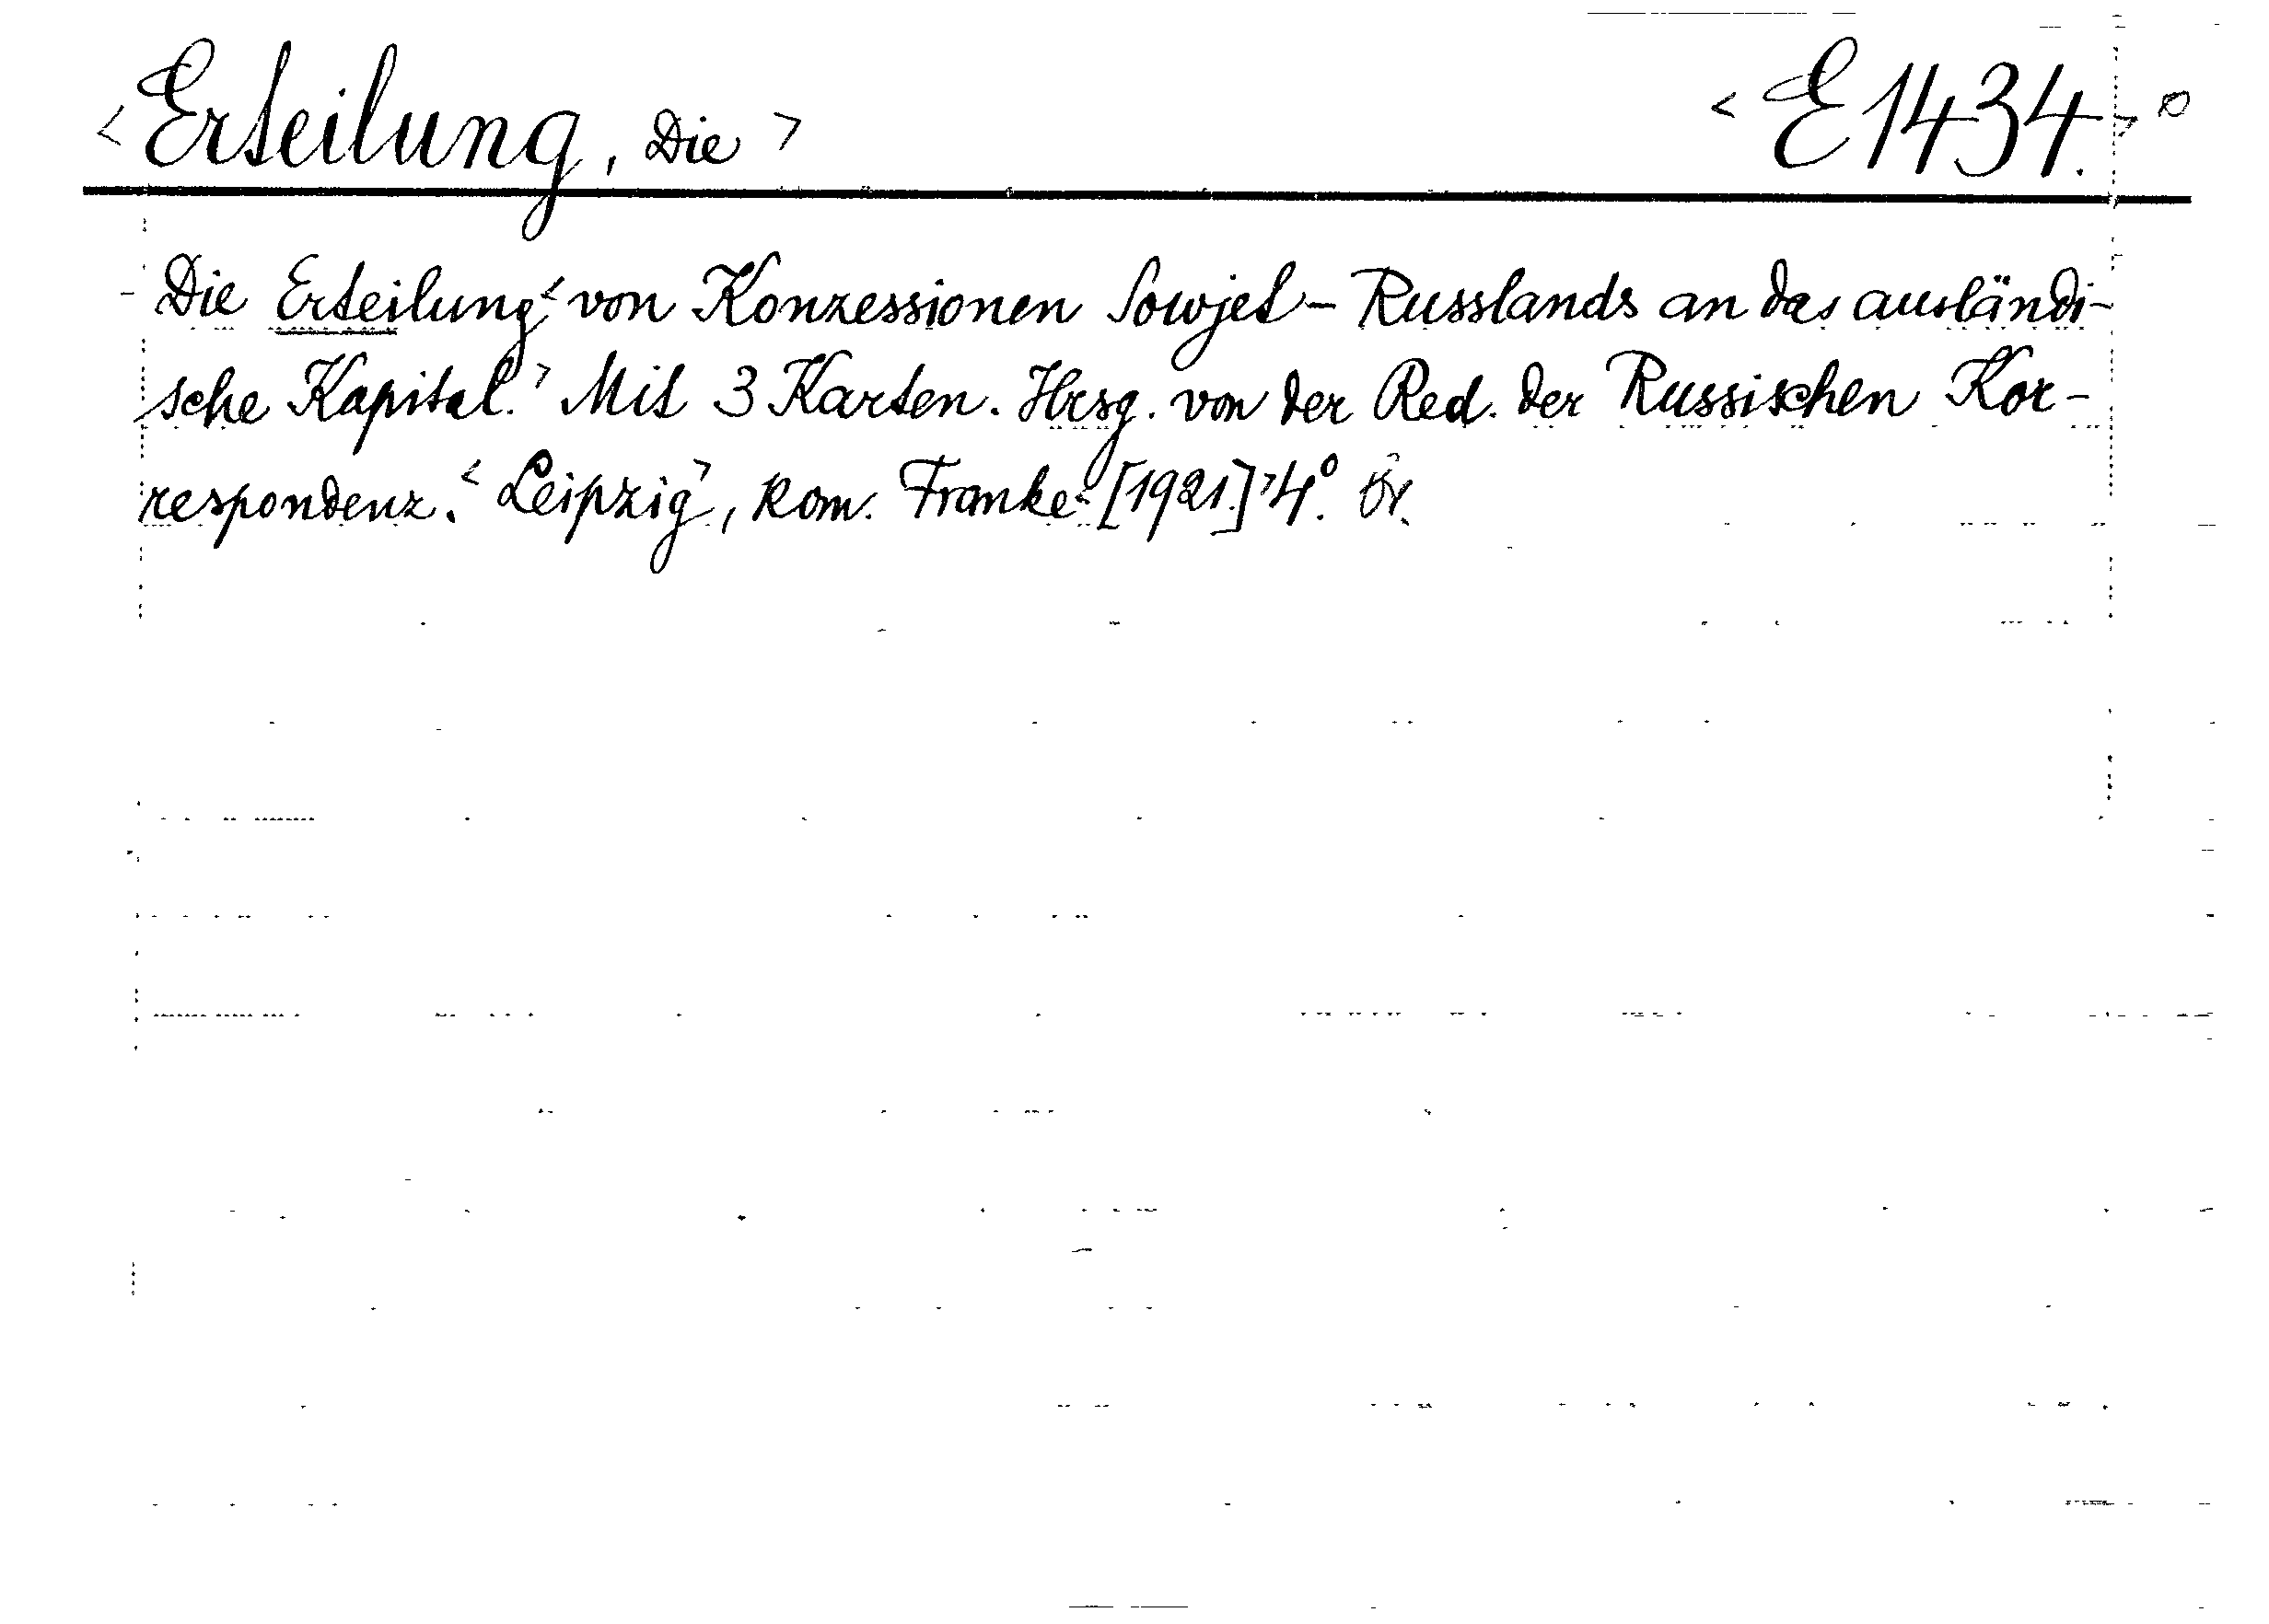 <Erteilung, Die> <E1434.>
Die Erteilung< von Konzessionen Sowjet-Russlands an das ausländi-
sche Kapital.> Mit 3 Karten. Hrsg. von der Red. der Russischen Kor-
respondenz. <Leipzig>, Kom. Franke <[1921.]> 4°.